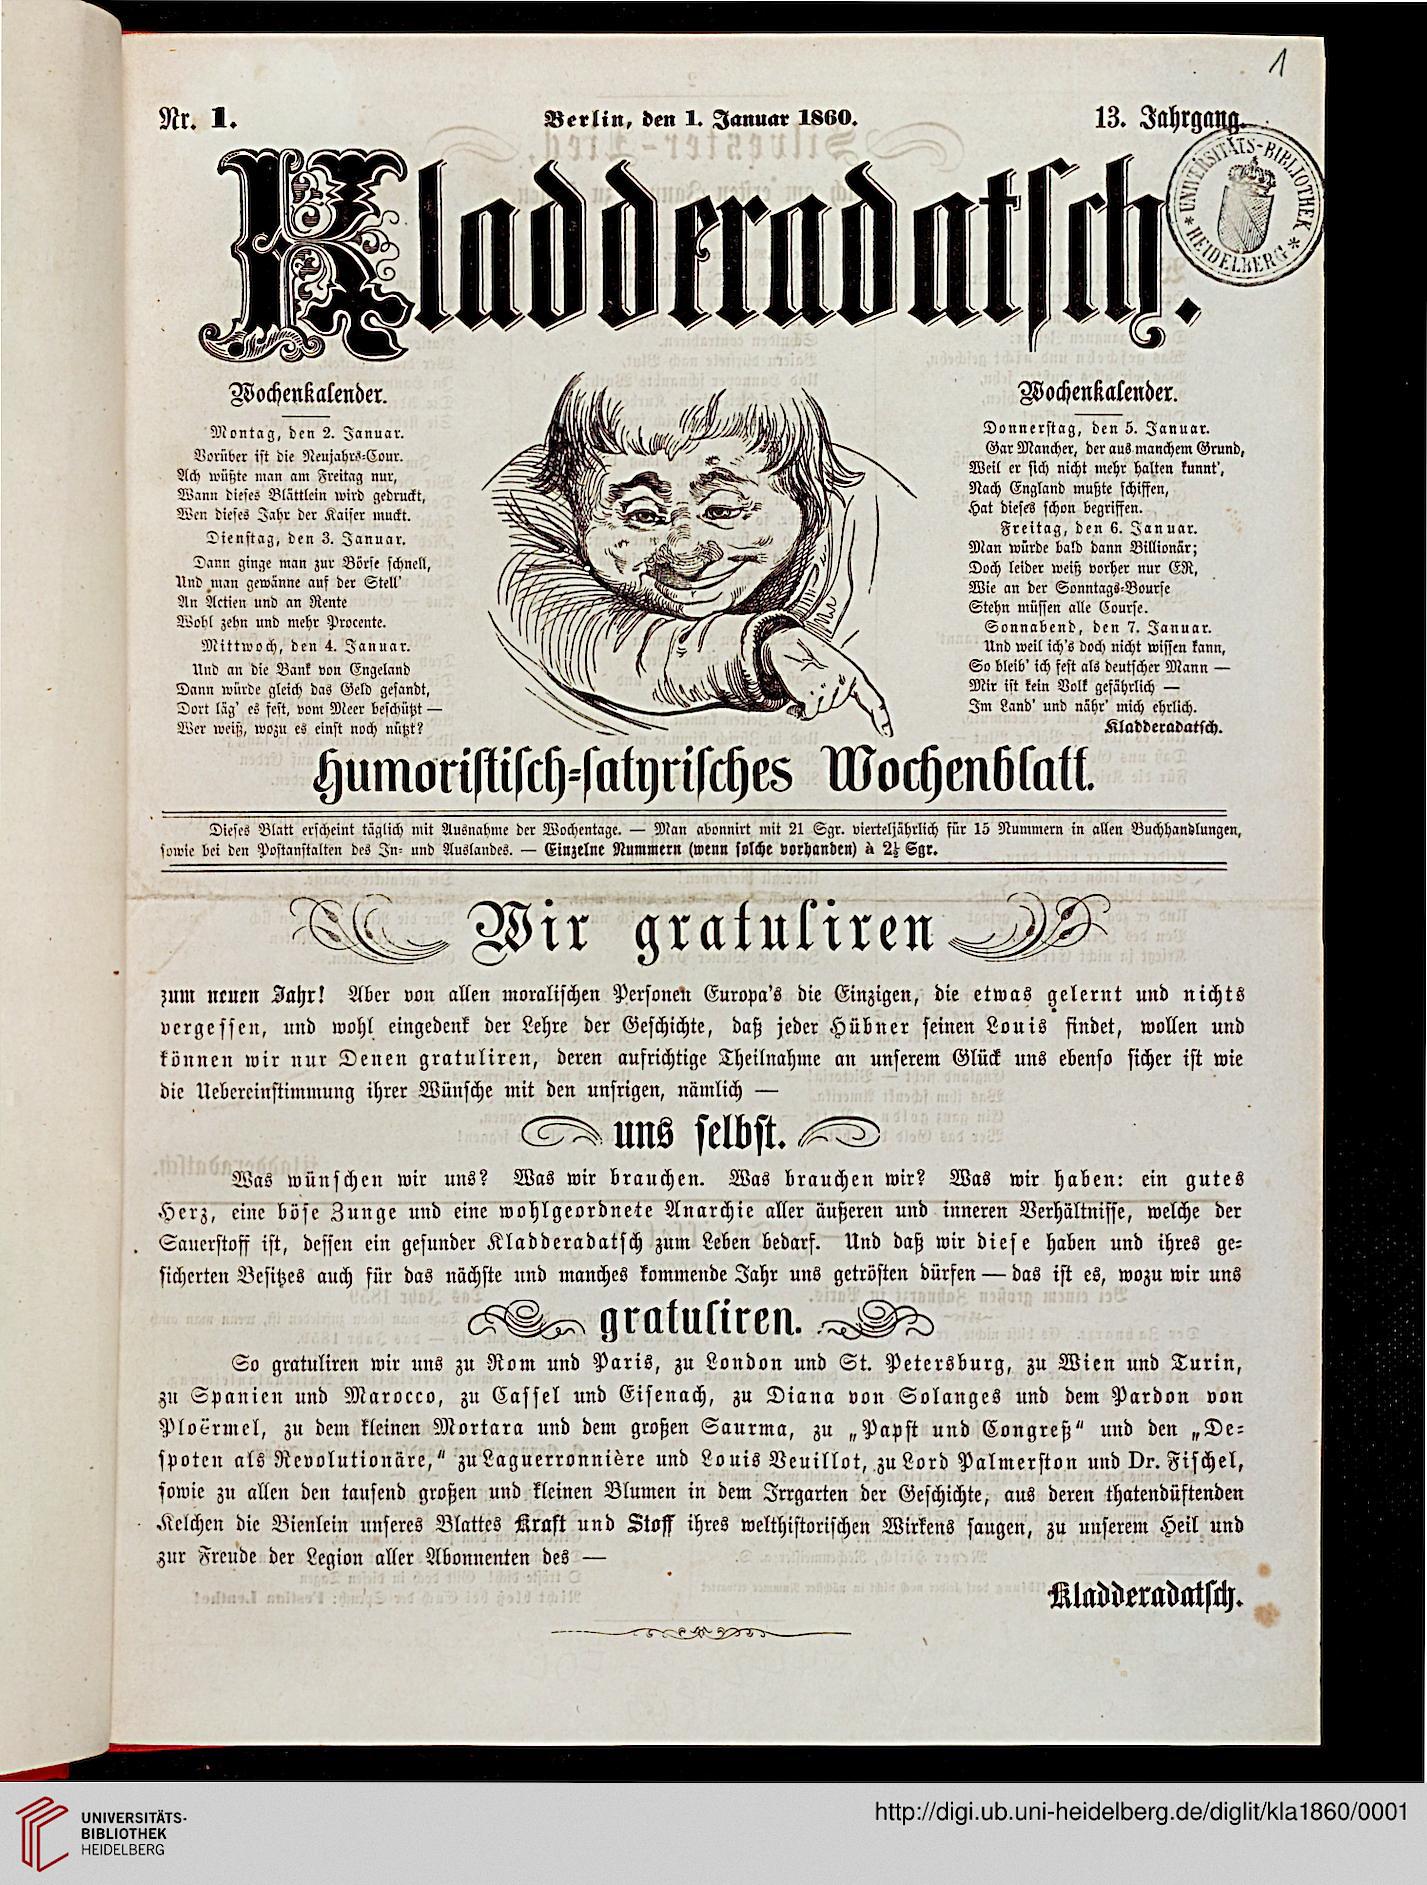 1
Nr. 1.
Berlin, den 1. Januar 1860.
13. Jahrgang.
Kladderadatsch.
UNIVERSITÄTS-BIBLIOTHEK * HEIDELBERG *
Wochenkalender.
Montag, den 2. Januar.
Vorüber ist die Neujahrs-Cour.
Ach wüßte man am Freitag nur,
Wann dieses Blättlein wird gedruckt,
Wen dieses Jahr der Kaiser muckt.
Dienstag, den 3. Januar.
Dann ginge man zur Börse schnell,
Und man gewänne auf der Stell'
An Actien und an Rente
Wohl zehn und mehr Procente.
Mittwoch, den 4. Januar.
Und an die Bank von Engeland
Dann würde gleich das Geld gesandt,
Dort läg' es fest, vom Meer beschützt —
Wer weiß, wozu es einst noch nützt?
Wochenkalender.
Donnerstag, den 5. Januar.
Gar Mancher, der aus manchem Grund,
Weil er sich nicht mehr halten kunnt',
Nach England mußte schiffen,
Hat dieses schon begriffen.
Freitag, den 6. Januar.
Man würde bald dann Billionär;
Doch leider weiß vorher nur ER,
Wie an der Sonntags-Bourse
Stehn müssen alle Course.
Sonnabend, den 7. Januar.
Und weil ich's doch nicht wissen kann,
So bleib' ich fest als deutscher Mann —
Mir ist kein Volk gefährlich —
Im Land' und nähr' mich ehrlich.
Kladderadatsch.
Humoristisch-satyrisches Wochenblatt.
Dieses Blatt erscheint täglich mit Ausnahme der Wochentage. — Man abonnirt mit 21 Sgr. vierteljährlich für 15 Nummern in allen Buchhandlungen,
sowie bei den Postanstalten des In- und Auslandes. — Einzelne Nummern (wenn solche vorhanden) à 2½ Sgr.
Wir gratuliren
zum neuen Jahr! Aber von allen moralischen Personen Europa's die Einzigen, die etwas gelernt und nichts
vergessen, und wohl eingedenk der Lehre der Geschichte, daß jeder Hübner seinen Louis findet, wollen und
können wir nur Denen gratuliren, deren aufrichtige Theilnahme an unserem Glück uns ebenso sicher ist wie
die Uebereinstimmung ihrer Wünsche mit den unsrigen, nämlich —
uns selbst.
Was wünschen wir uns? Was wir brauchen. Was brauchen wir? Was wir haben: ein gutes
Herz, eine böse Zunge und eine wohlgeordnete Anarchie aller äußeren und inneren Verhältnisse, welche der
Sauerstoff ist, dessen ein gesunder Kladderadatsch zum Leben bedarf. Und daß wir diese haben und ihres ge-
sicherten Besitzes auch für das nächste und manches kommende Jahr uns getrösten dürfen — das ist es, wozu wir uns
gratuliren.
So gratuliren wir uns zu Rom und Paris, zu London und St. Petersburg, zu Wien und Turin,
zu Spanien und Marocco, zu Cassel und Eisenach, zu Diana von Solanges und dem Pardon von
Ploërmel, zu dem kleinen Mortara und dem großen Saurma, zu „Papst und Congreß" und den „De-
spoten als Revolutionäre," zu Laguerronnière und Louis Veuillot, zu Lord Palmerston und Dr. Fischel,
sowie zu allen den tausend großen und kleinen Blumen in dem Irrgarten der Geschichte, aus deren thatendüftenden
Kelchen die Bienlein unseres Blattes Kraft und Stoff ihres welthistorischen Wirkens saugen, zu unserem Heil und
zur Freude der Legion aller Abonnenten des —
Kladderadatsch.
UNIVERSITÄTS-
BIBLIOTHEK
HEIDELBERG
http://digi.ub.uni-heidelberg.de/diglit/kla1860/0001